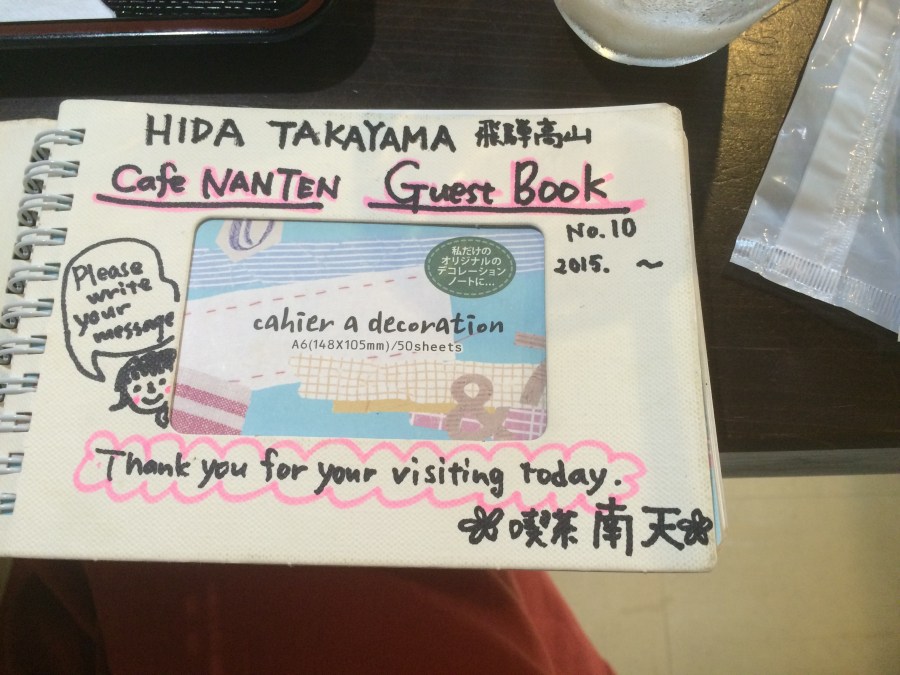 HIDA TAKAYAMA 飛騨高山
Cafe NANTEN Guest Book
No.10
2015. ~
Please
write
your
message
私だけの
オリジナルの
デコレーション
ノートに...
cahier a decoration
A6(148X105mm)/50sheets
Thank you for your visiting today.
喫茶 南天